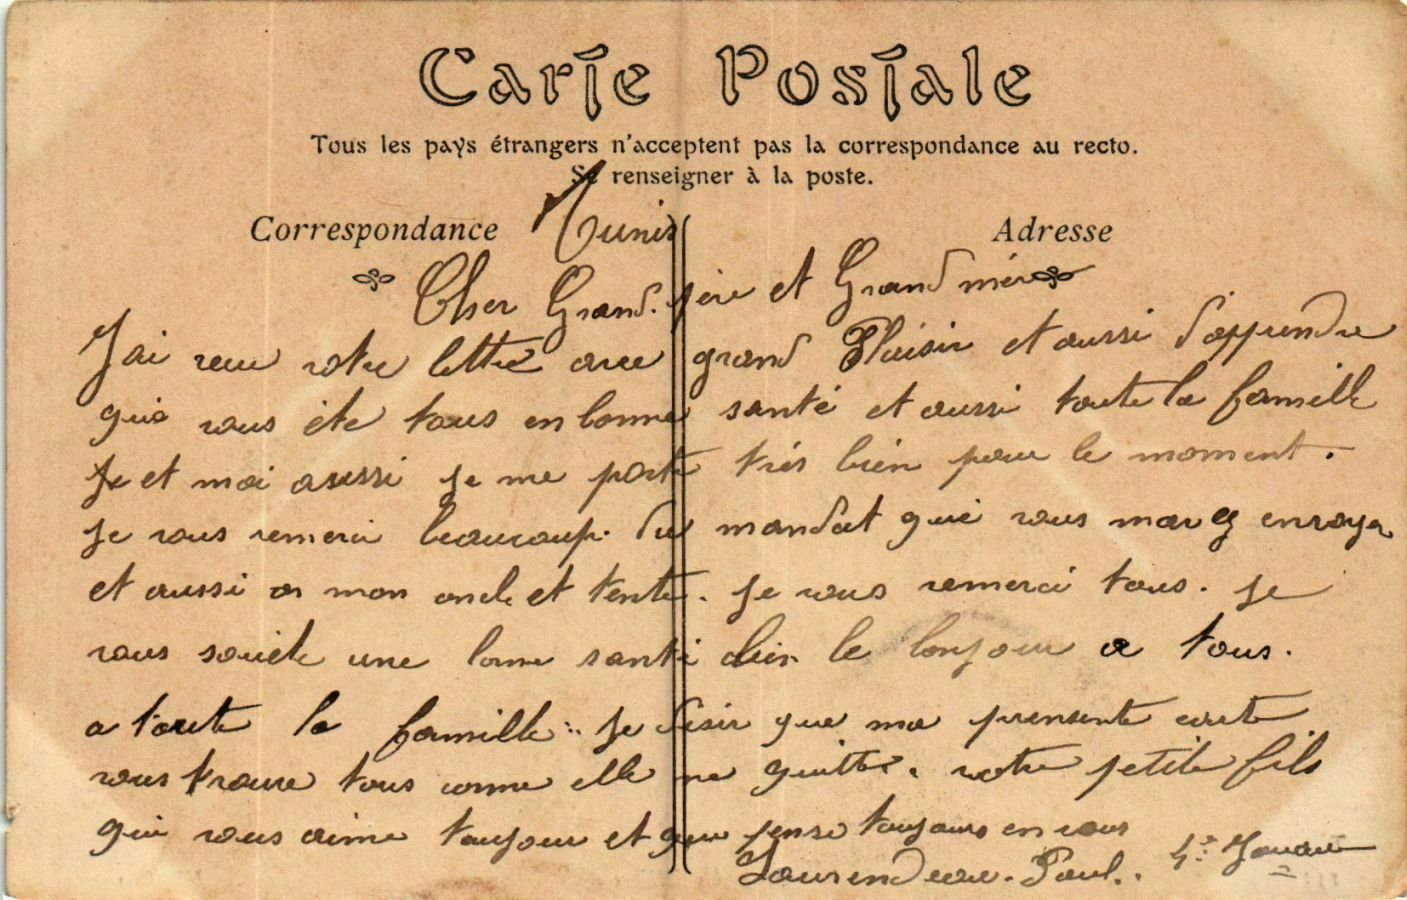 Carte Postale
Tous les pays étrangers n'acceptent pas la correspondance au recto.
Se renseigner à la poste.
Correspondance
Adresse
Tunis
Cher Grand-père et Grand mère
J'ai reçu votre lettre avec grand Plaisir et aussi d'apprendre
que vous ête tous en bonne santé et aussi toute la famille
Je et moi aussi je me porte très bien pour le moment.
Je vous remerci beaucoup du mandat que vous envoyer
et aussi a mon oncle et tente. Je vous remerci tous. Je
vous souete une bonne santé bien le bonjour a tous.
a toute la famille. Je désir que ma presente carte
vous trouve tous comme elle me quitte. votre petit fils
qui vous aime toujour et que pense toujours en vous
Paul.